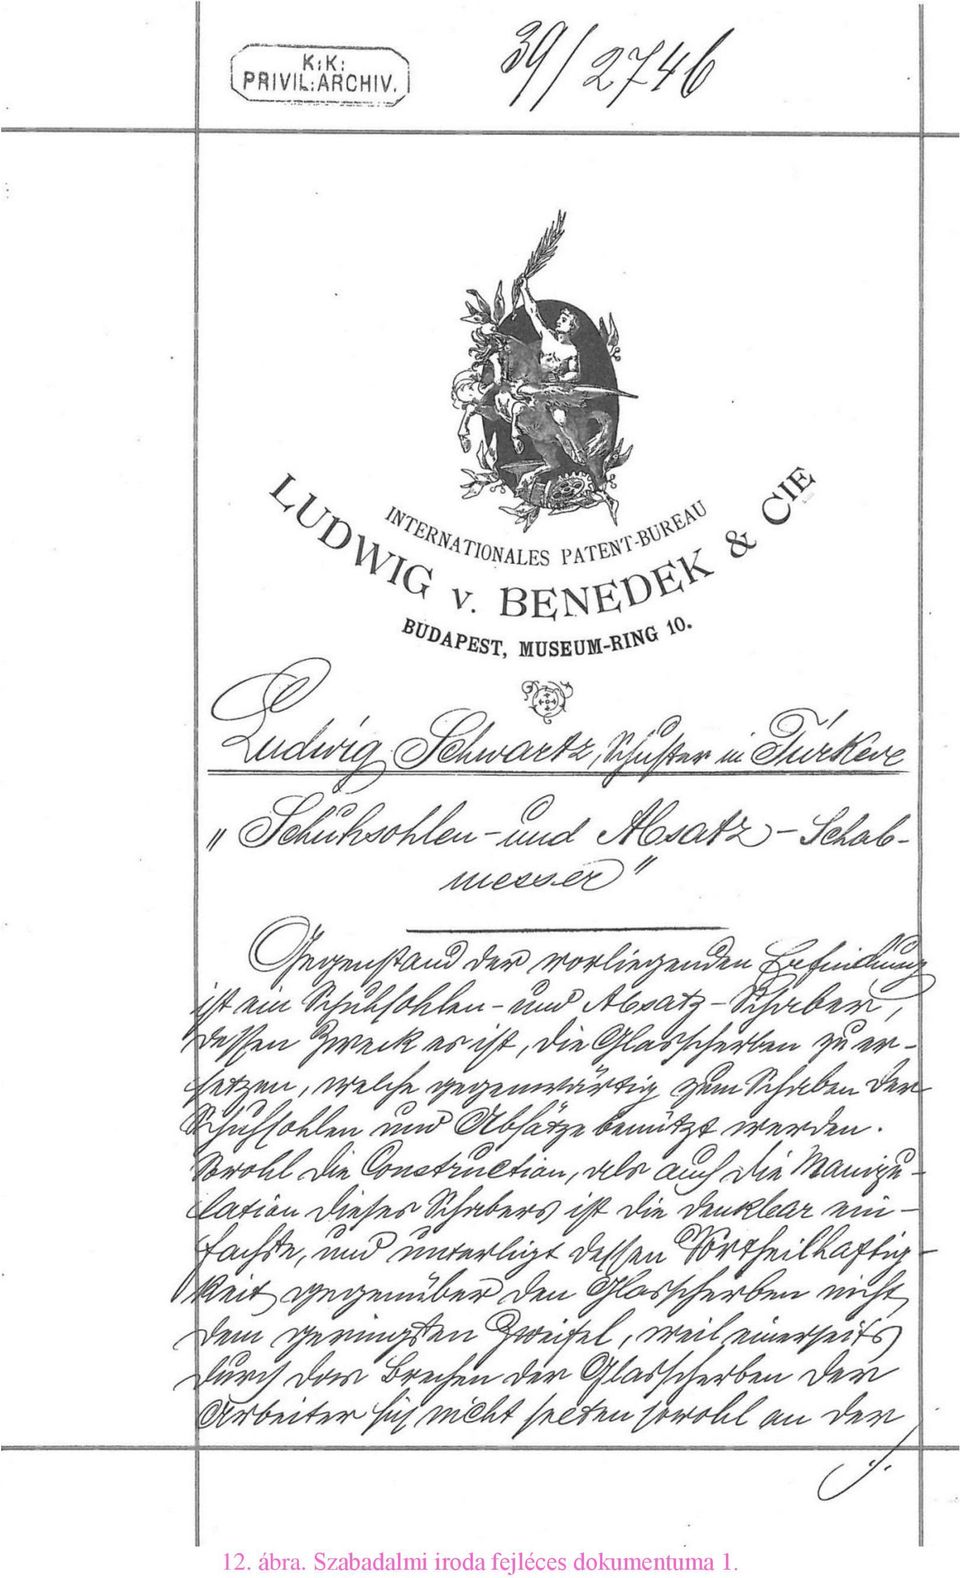 K:K:
PRIVIL:ARCHIV.
39/2746
INTERNATIONALES PATENT-BUREAU
LUDWIG v. BENEDEK & CIE
BUDAPEST, MUSEUM-RING 10.
Ludwig Schwartz, Schuster in Túrkeve
"Schuhsohlen- und Absatz-Schab-
messer"
Gegenstand der vorliegenden Erfindung
ist ein Schuhsohlen- und Absatz-Schaber,
dessen Zweck es ist, die Glasscherben zu er-
setzen, welche gegenwärtig zum Schaben der
Schuhsohlen und Absätze benützt werden.
Sowohl die Construction, als auch die Manipu-
lation dieses Schabers ist die denkbar ein-
fachste, und unterliegt dessen Vortheilhaftig-
keit gegenüber den Glasscherben nicht
dem geringsten Zweifel, weil einerseits
durch das Brechen der Glasscherben der
Arbeiter sich nicht selten sowohl an der
./.
12. ábra. Szabadalmi iroda fejléces dokumentuma 1.